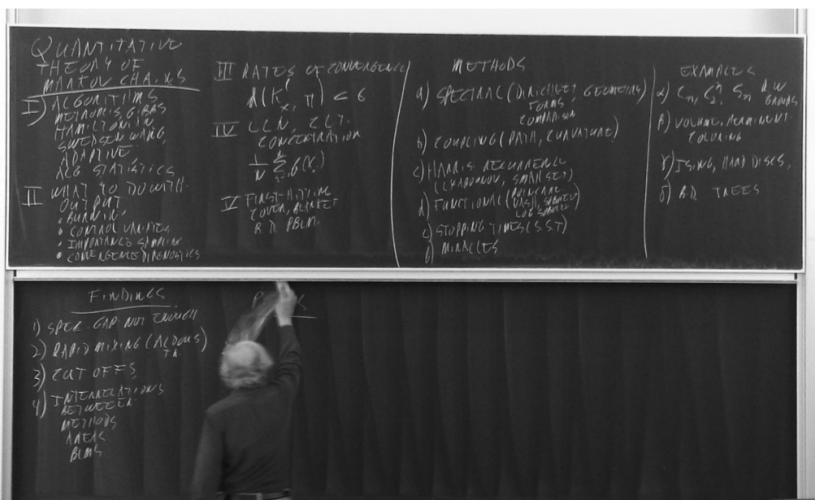 QUANTITATIVE
THEORY OF
MARKOV CHAINS
I) ALGORITHMS
METROPOLIS, GIBBS
HAMILTONIAN
SWENDSEN WANG,
ADAPTIVE,
ALG STATISTICS
II WHAT TO DO WITH
OUTPUT
• BURN IN
• CONTROL VARIATES
• IMPORTANCE SAMPLING
• CONVERGENCE DIAGNOSTICS
III RATES OF CONVERGENCE
d(K^l_x, π) < ε
IV LLN, CLT
CONCENTRATION
IV FIRST HITTING
COVER,
R.R. PBLM.
METHODS
a) SPECTRAL (DIRICHLET, GEOMETRY)
FORMS,
COMPARISON
b) COUPLING (PATH, CURVATURE)
c) HARRIS RECURRENCE
(LYAPUNOV, SMALL SET)
d) FUNCTIONAL (POINCARE
NASH, SOBOLEV
LOG SOBOLEV)
e) STOPPING TIMES (SST)
f) MIRACLES
EXAMPLES
GROUPS
β) VOLUME, PERMANENT
COLORING
γ) ISING, HARD DISCS,
δ) TREES
FINDINGS
1) SPEC. GAP NOT ENOUGH
2) RAPID MIXING (ALDOUS)
3) CUT OFFS
4) INTERRELATIONS
BETWEEN
METHODS
AREAS